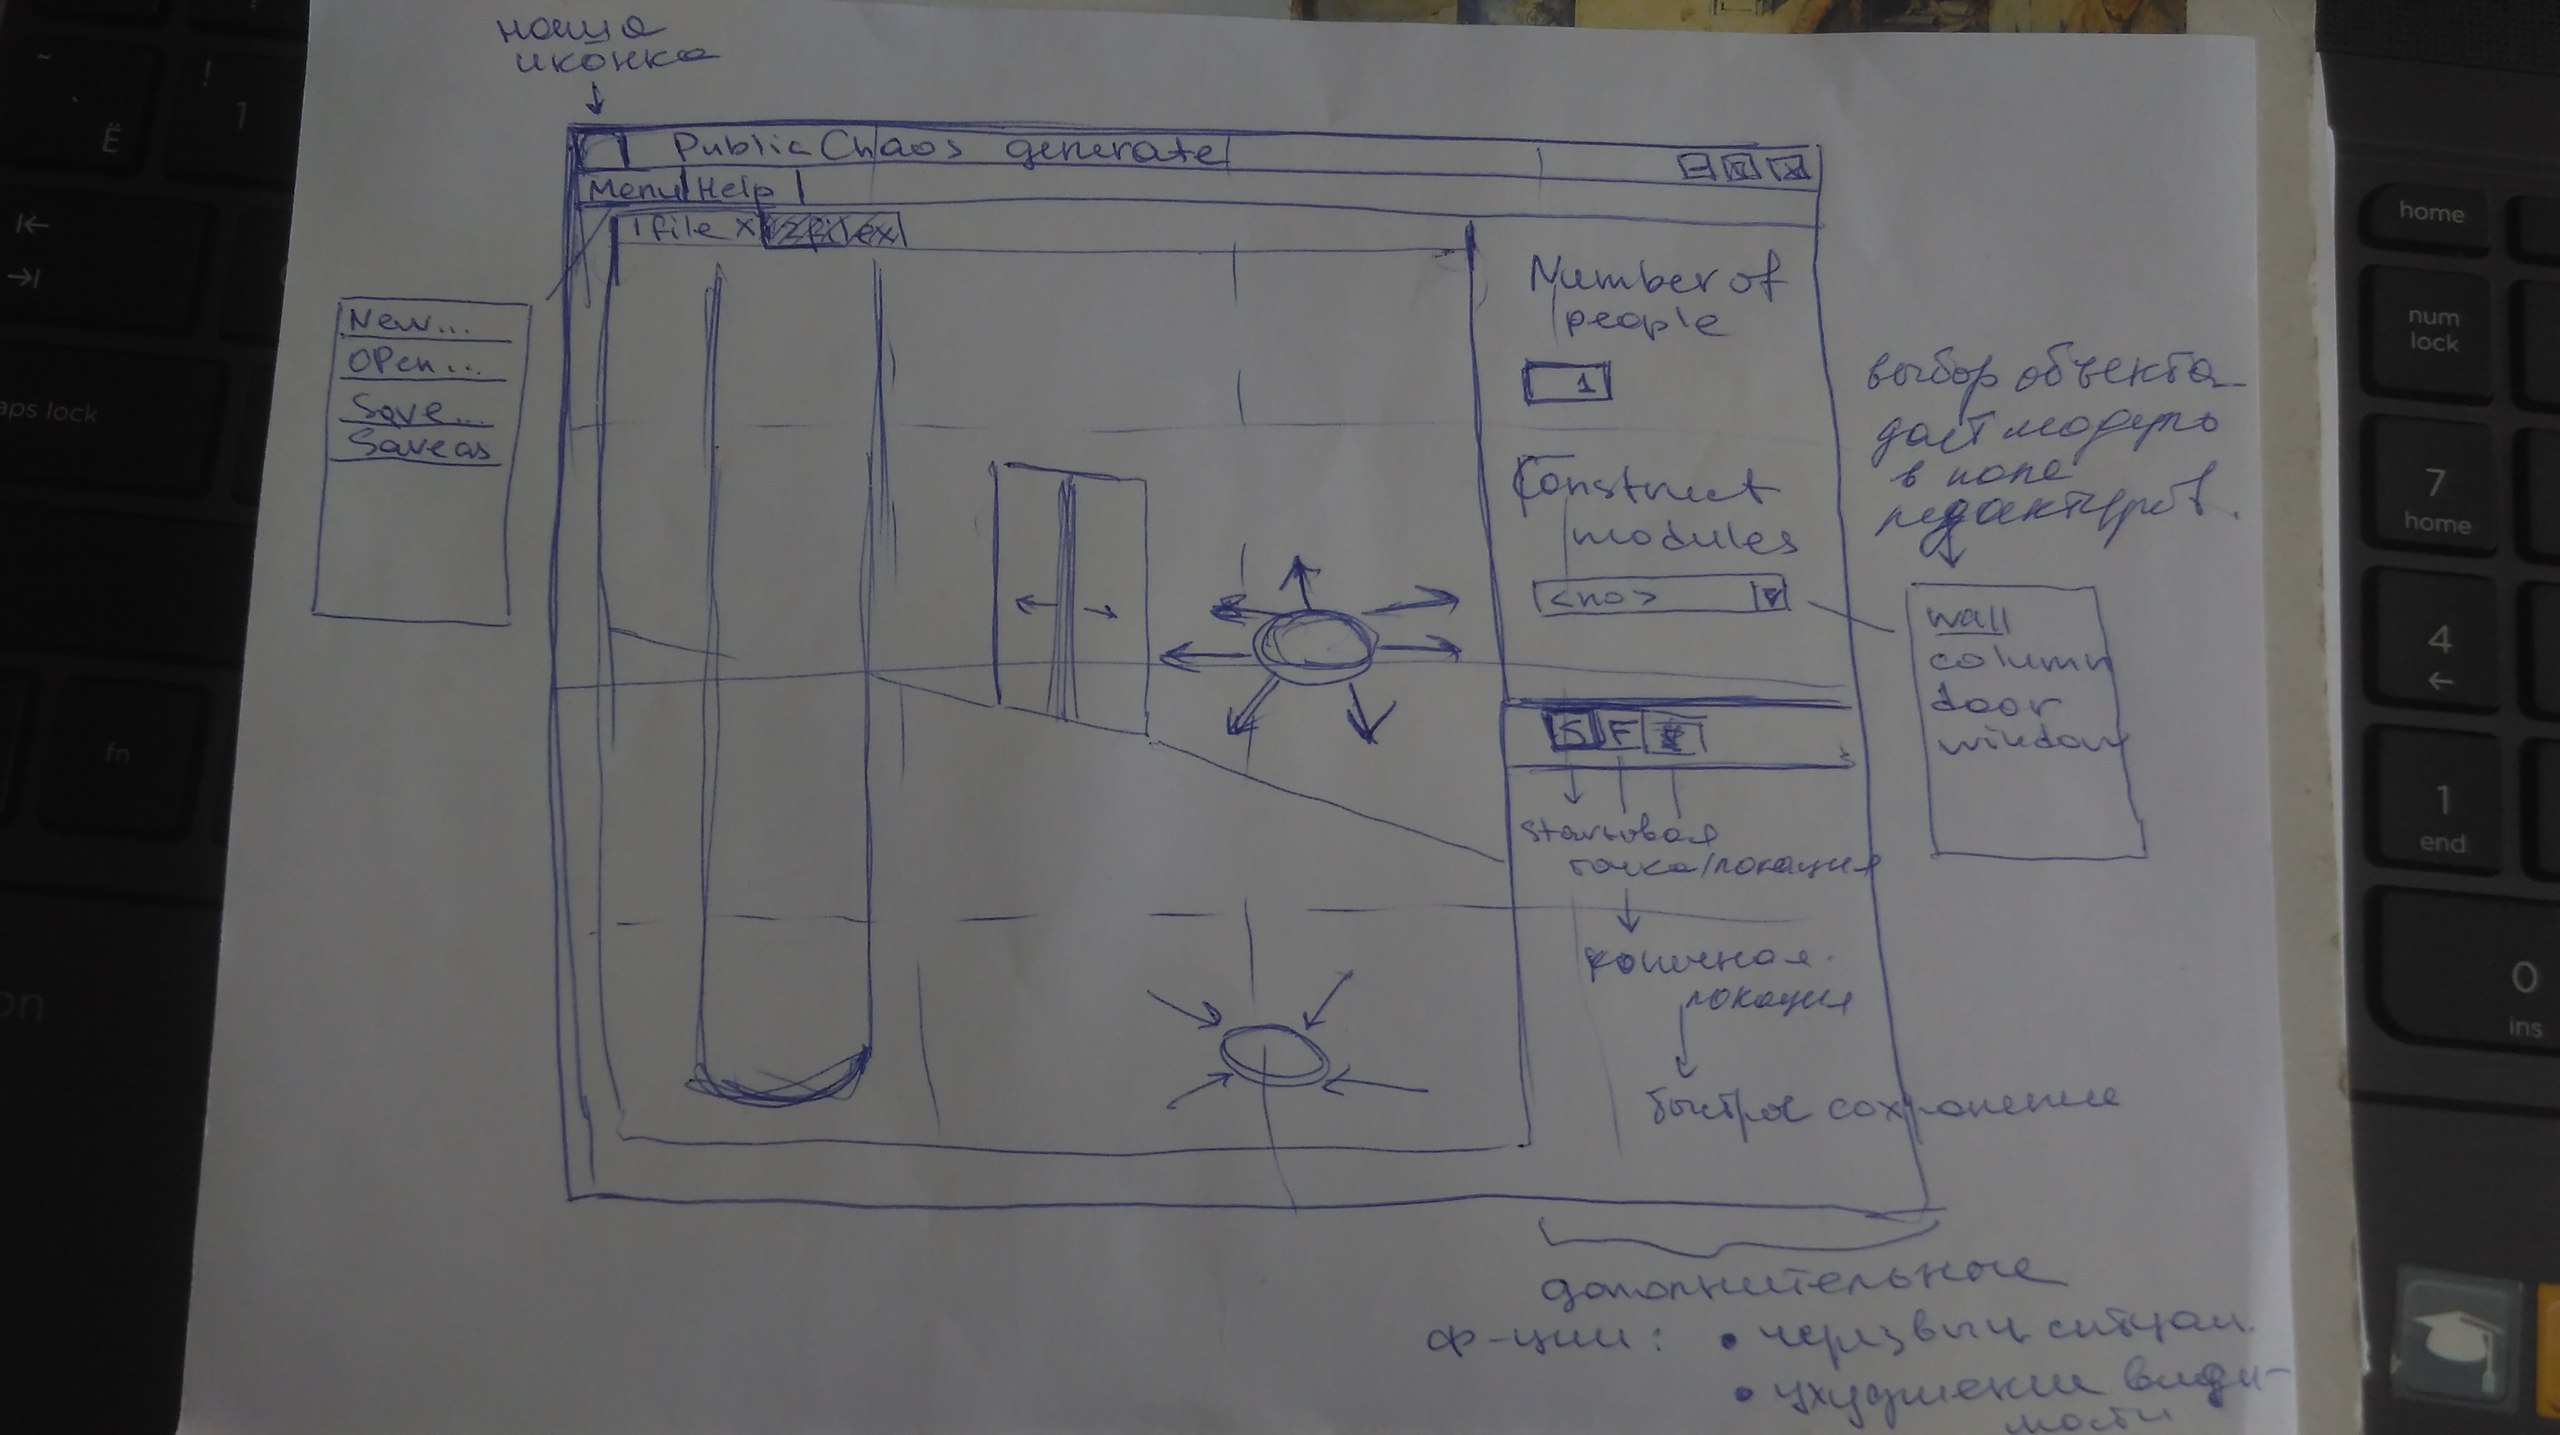 наша
иконка
Public Chaos generate
Menu Help
1 file x 2 file x
New...
Open...
Save...
Save as
Number of
people
1
Construct
modules
<no>
выбор объекта
даст модуль
в поле
wall
column
door
window
S F
стартовая
точка/локация
конечная
локация
быстрое сохранение
дополнительные
ф-ции: • черезвыч. ситуац.
• ухудшении види-
мости
Ё
!
1
caps lock
fn
home
num
lock
7
home
4
←
1
end
0
ins